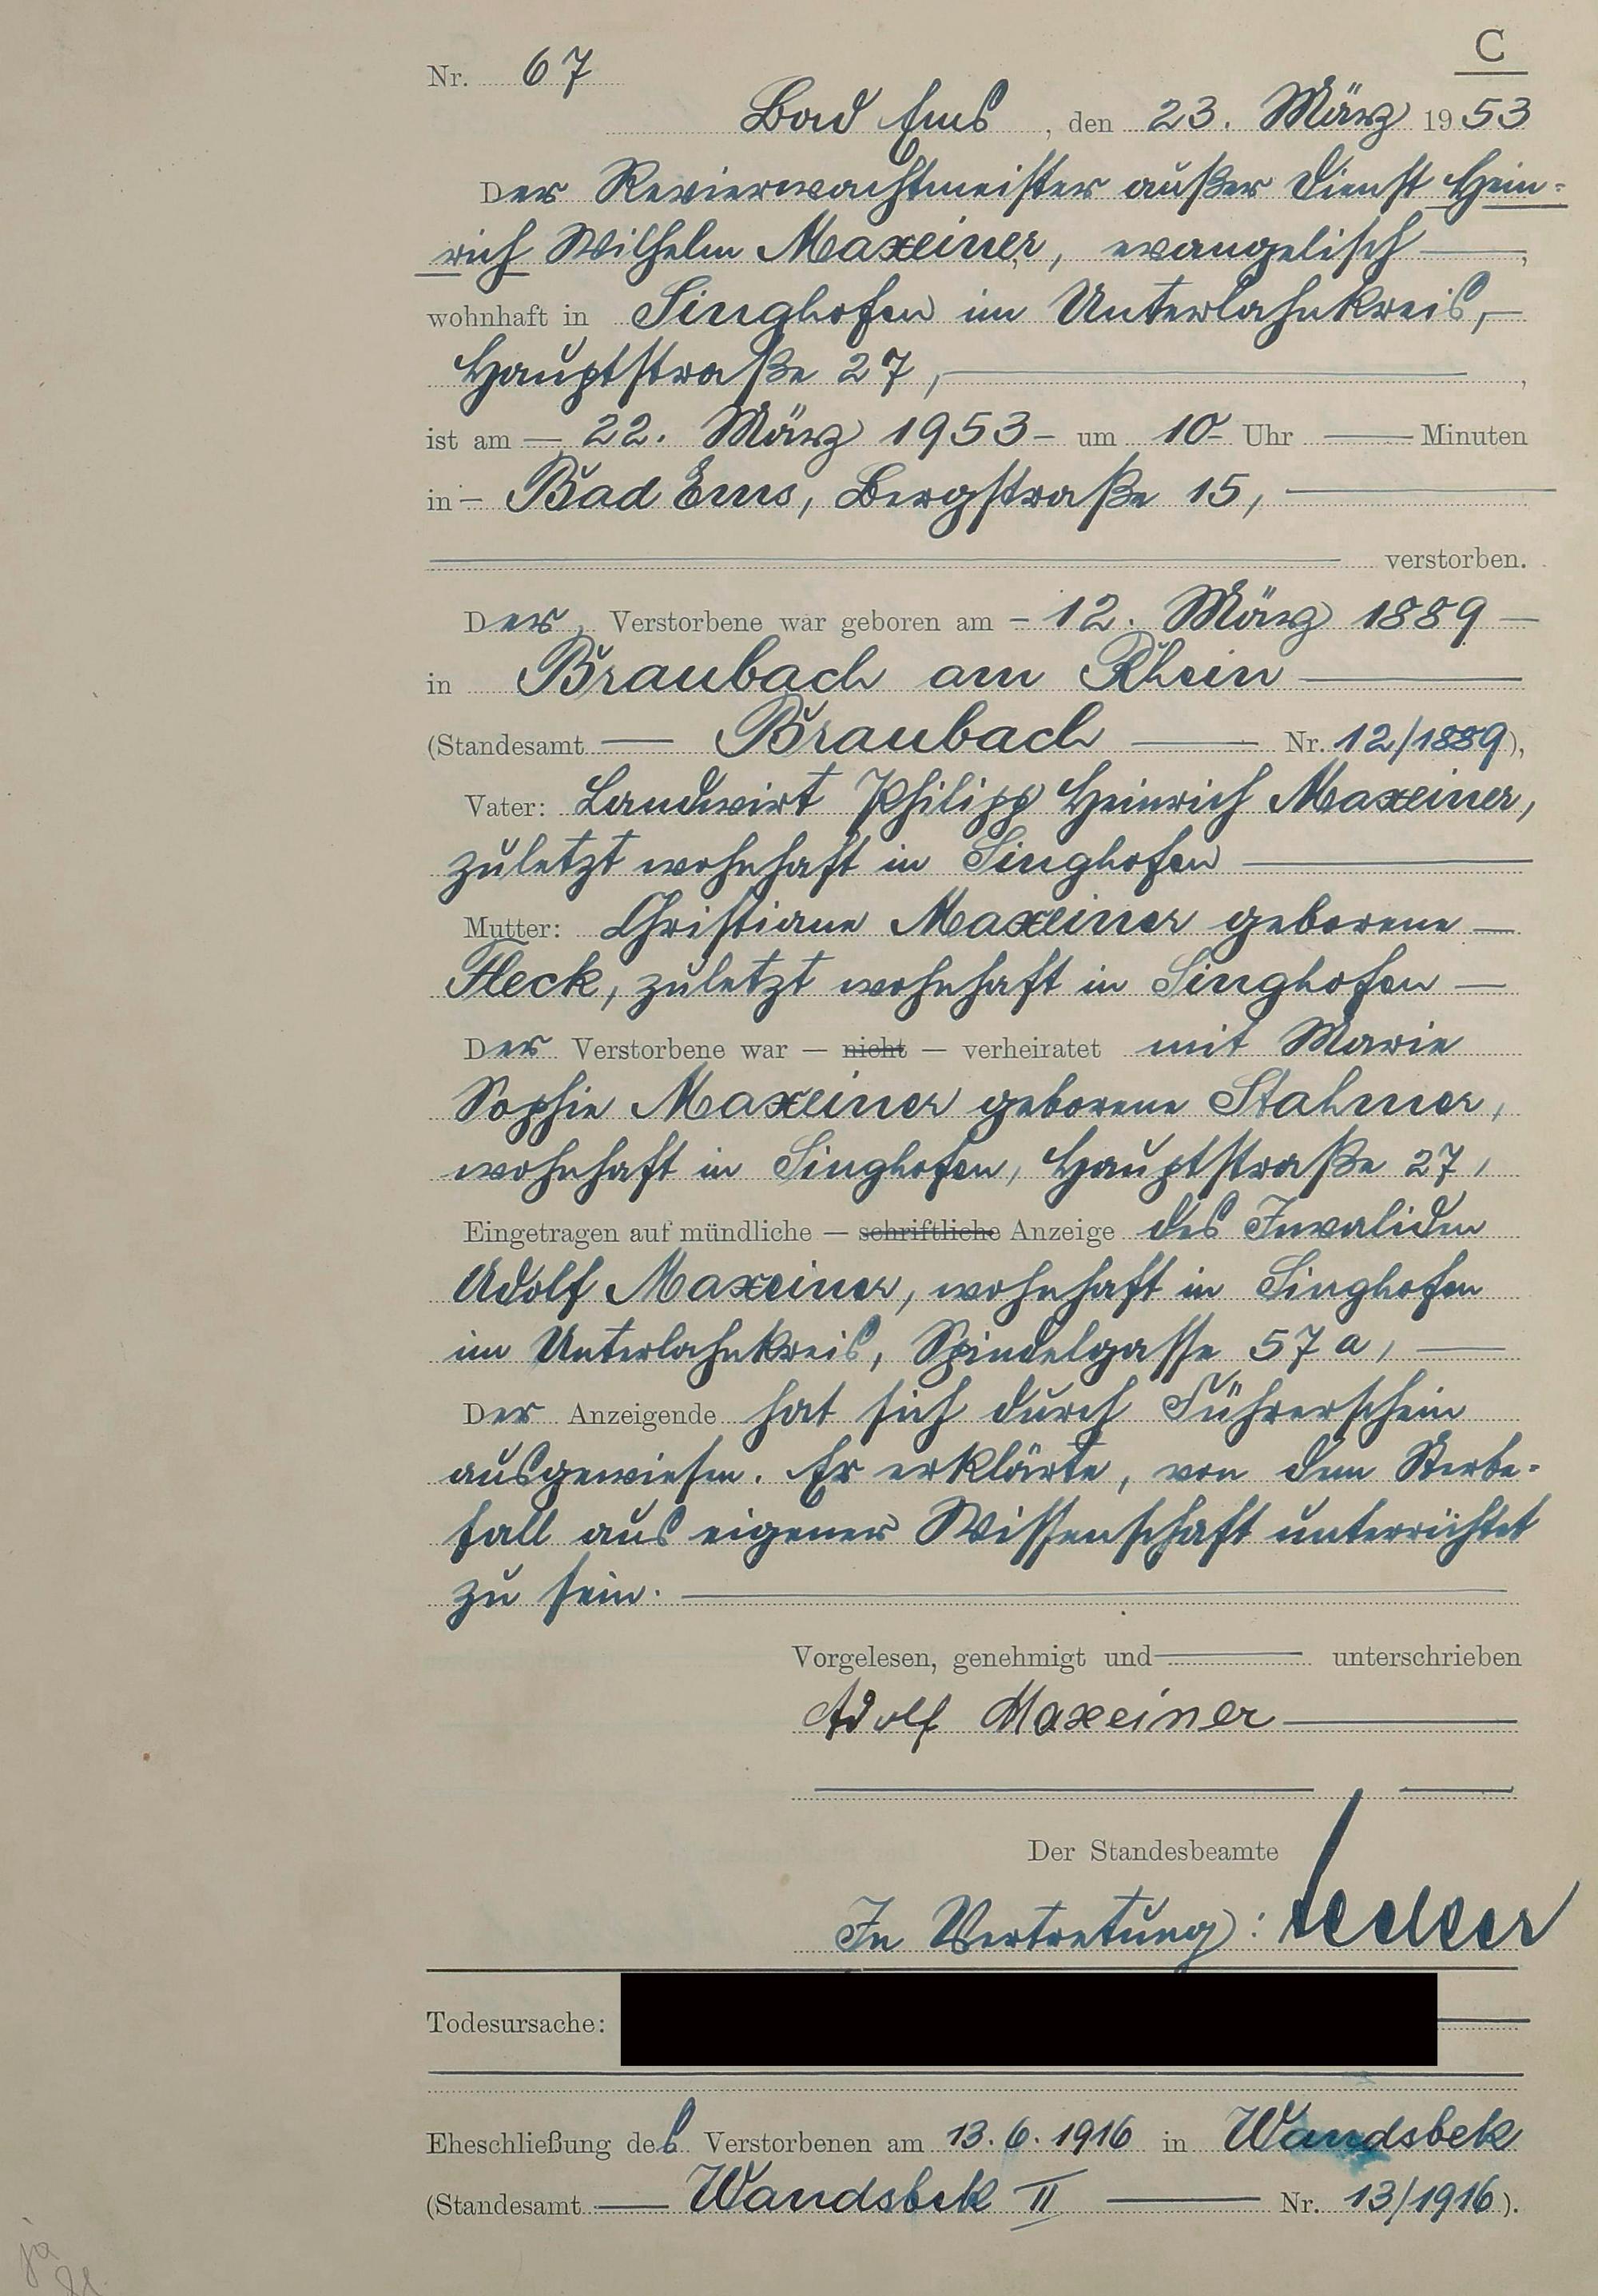 C
Nr. 67
Bad Ems, den 23. März 1953
Der Revierwachtmeister außer Dienst Hein-
rich Wilhelm Maxeiner, evangelisch —,
wohnhaft in Singhofen im Unterlahnkreis, —
Hauptstraße 27, —,
ist am — 22. März 1953 - um 10 - Uhr — Minuten
in - Bad Ems, Bergstraße 15, —
— verstorben.
Der Verstorbene war geboren am - 12. März 1889 —
in Braubach am Rhein —
(Standesamt — Braubach — Nr. 12/1889),
Vater: Landwirt Philipp Heinrich Maxeiner,
zuletzt wohnhaft in Singhofen —
Mutter: Christiane Maxeiner geborene —
Fleck, zuletzt wohnhaft in Singhofen —
Der Verstorbene war — nicht — verheiratet mit Marie
Sophie Maxeiner geborene Stahmer,
wohnhaft in Singhofen, Hauptstraße 27,
Eingetragen auf mündliche — schriftliche Anzeige des Invaliden
Adolf Maxeiner, wohnhaft in Singhofen
im Unterlahnkreis, Spindelgasse 57 a, —
Der Anzeigende hat sich durch Führerschein
ausgewiesen. Er erklärte, von dem Sterbe-
fall aus eigener Wissenschaft unterrichtet
zu sein. —
Vorgelesen, genehmigt und — unterschrieben
Adolf Maxeiner —
Der Standesbeamte
In Vertretung:
Todesursache:
Eheschließung des Verstorbenen am 13.6.1916 in Wandsbek
(Standesamt — Wandsbek II — Nr. 13/1916).
ja